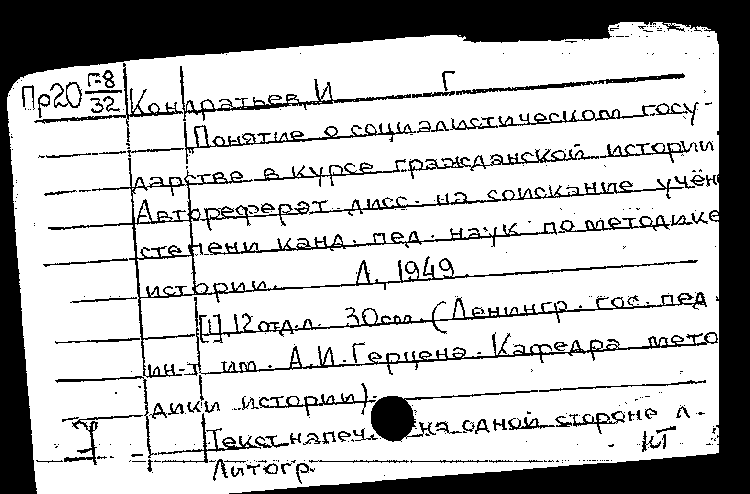 Пр20 Г-8/32 Кондратьев, И Г
Понятие о социалистическом госу-
дарстве в курсе гражданской истории
Автореферат дисс. на соискание учён
степени канд. пед. наук по методике
истории. Л., 1949.
[1], 12 отд.л. 30см. (Ленингр. гос. пед.
ин-т им. А.И.Герцена. Кафедра мето
дики истории).
Текст напеч. на одной стороне л.
Литогр. КТ